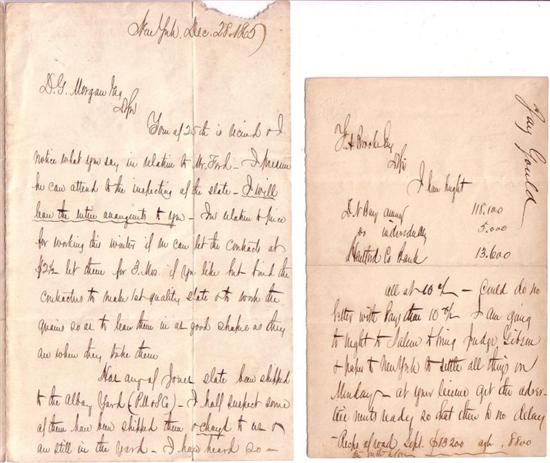 New York, Dec. 28. 1865
D. G. Morgan Esq
D Sir
Yours of 25th is recived & I
notice what you say in relation to Mr. Ford - I presume
he can attend to the inspecting of the slate - I will
leave the entire arrangements to you - In relation to price
for working this winter if we can let the contracts at
$2½ let them for 3. Mos. if you like but bind the
contractors to make 1st quality slate & to work the
quarries so as to leave them in as good shape as they
are when they take them
Has any of Jones slate been shipped
to the Albany Yard - I half suspect some
of them have been shipped there & charged to us or
are still in the yard - I have heard so -
Jay Gould
Esq
D Sir
I have bought
118,100
do individually 5.000
Co Bank 13.600
all at 10% - Could do no
better with than 10% I am going
to night to Salem to bring Judge Gibson
& papers to New York to settle all things on
Monday - at your leisure get the adver-
tise ments ready so that there is no delay
Recpts of road Sept. $13200 8800